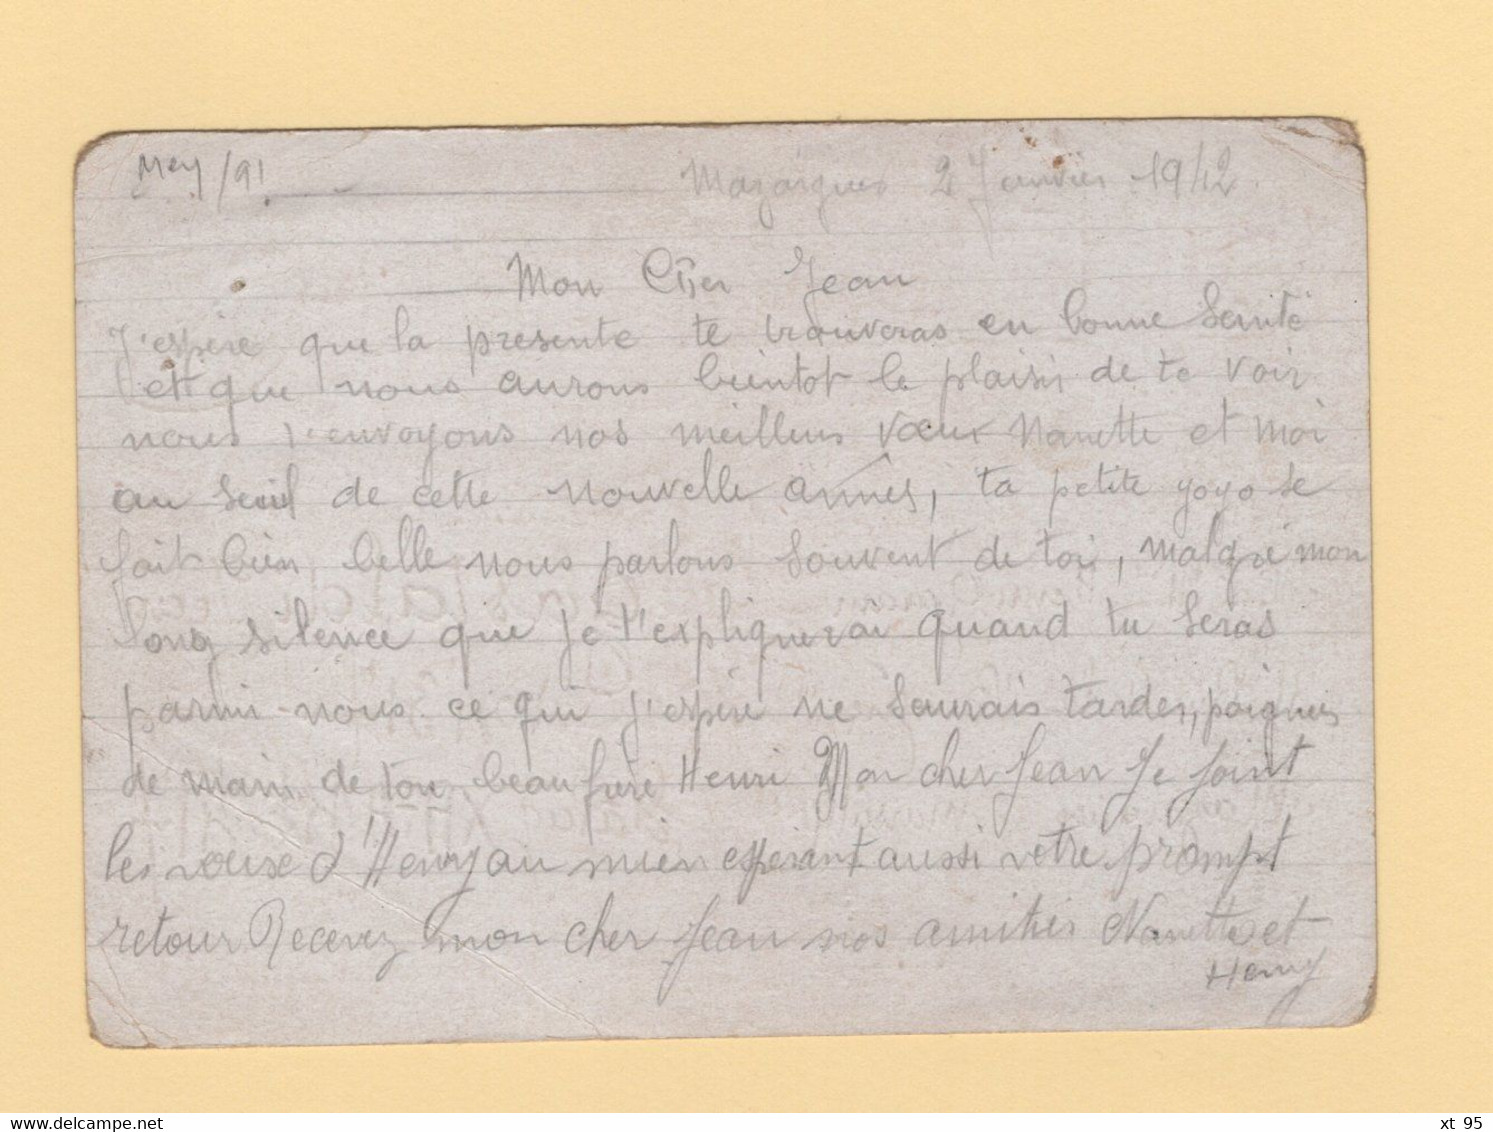 Mazargues 2 Janvier 1942
Mon Cher Jean
J'espère que la presente te trouveras en bonne Senité
et que nous aurons bientot le plaisir de te voir
nous t'envoyons nos meilleurs vœux Nanette et moi
au seuil de cette nouvelle année, ta petite yoyo se
fait bien belle nous parlons souvent de toi, malgré mon
long silence que je t'expliquerai quand tu seras
parmi-nous ce qui j'espère ne saurais tarder, poignées
de main de ton beau frère Henri Mon cher Jean Je joint
les voeux d'Henry au mien esperant aussi votre prompt
retour Recevez mon cher Jean nos amitiés Nanette et
Henry
xt 95